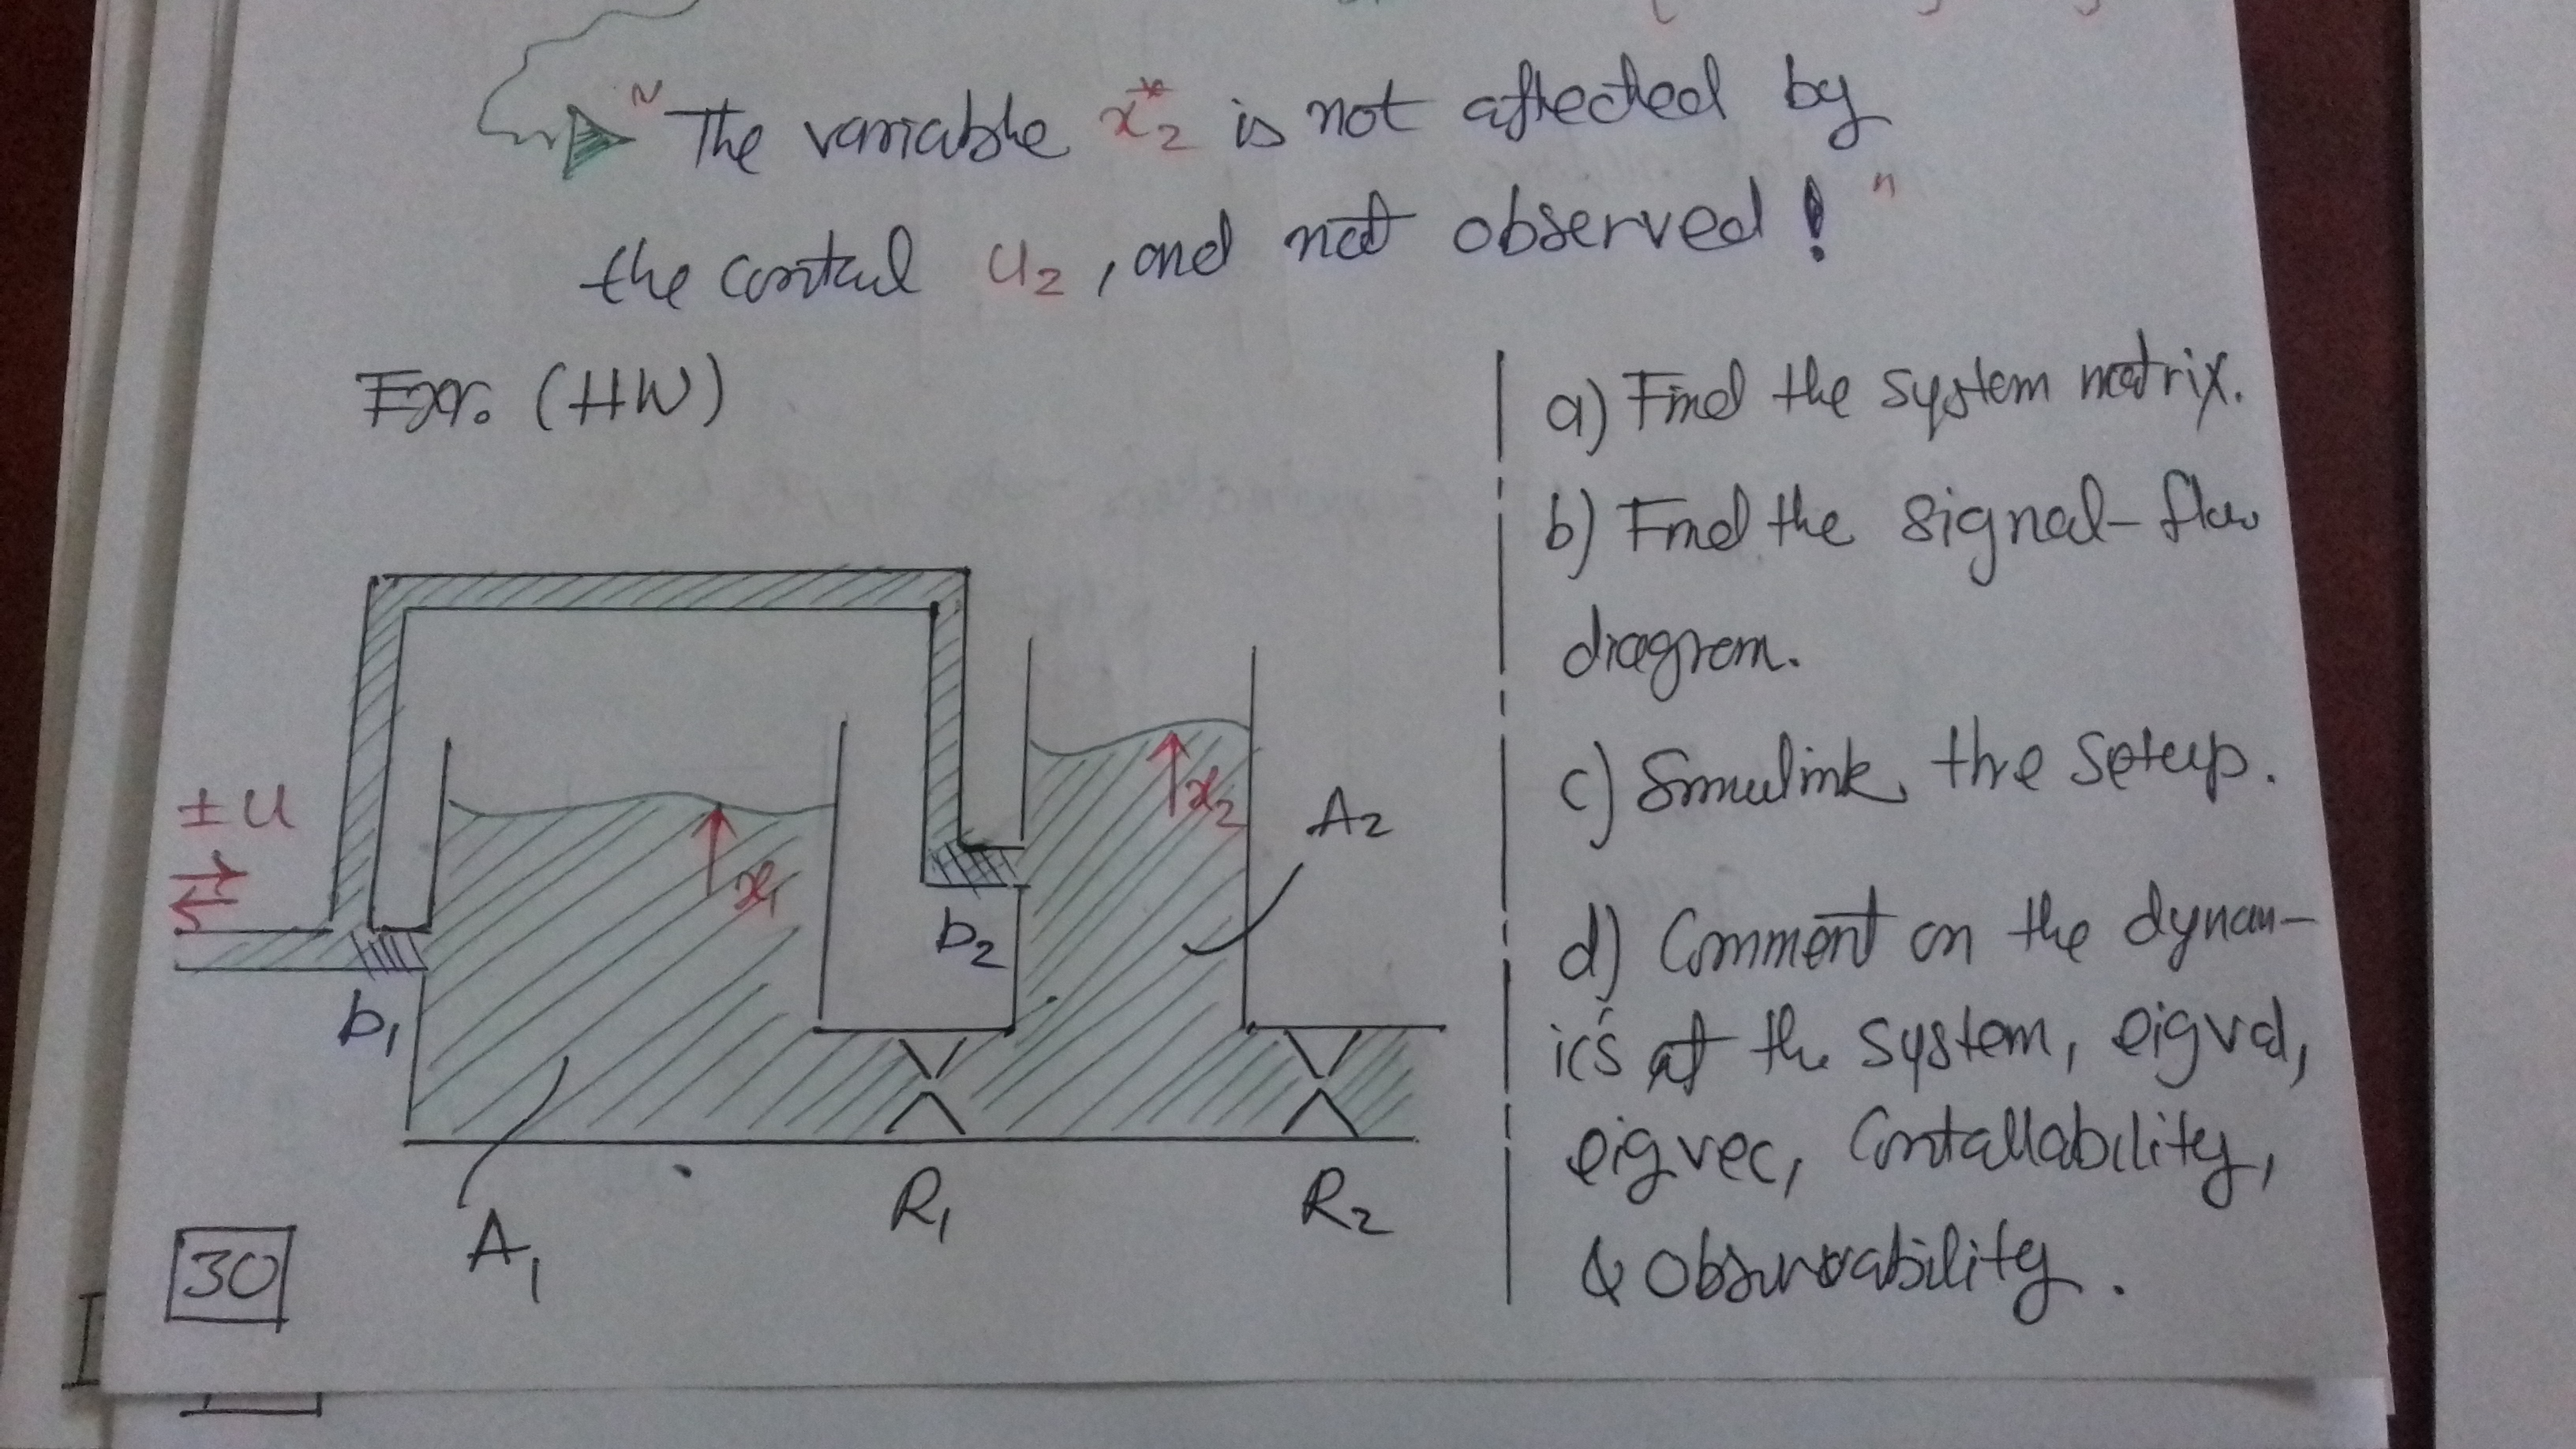 "The variable x*2 is not affected by
the control u2, and not observed!"
Exr. (HW)
a) Find the system matrix.
b) Find the signal-flow
diagram.
c) Simulink the setup.
d) Comment on the dynam-
ic's of the system, eigval,
eigvec, Contallability,
& Observability.
±u
x1
x2
A2
b2
b1
R1
R2
A1
30